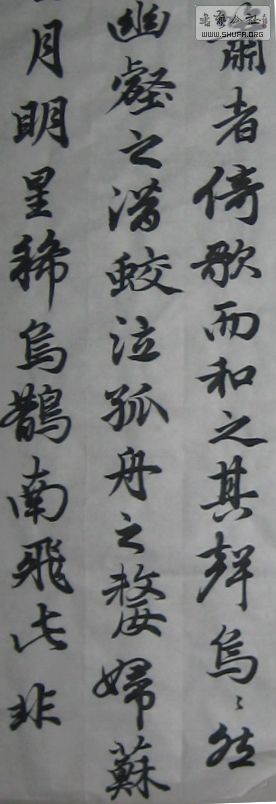 簫者倚歌而和之其聲烏〻然
幽壑之潛蛟泣孤舟之嫠婦蘇
月明星稀烏鵲南飛此非
WWW.SHUFA.ORG